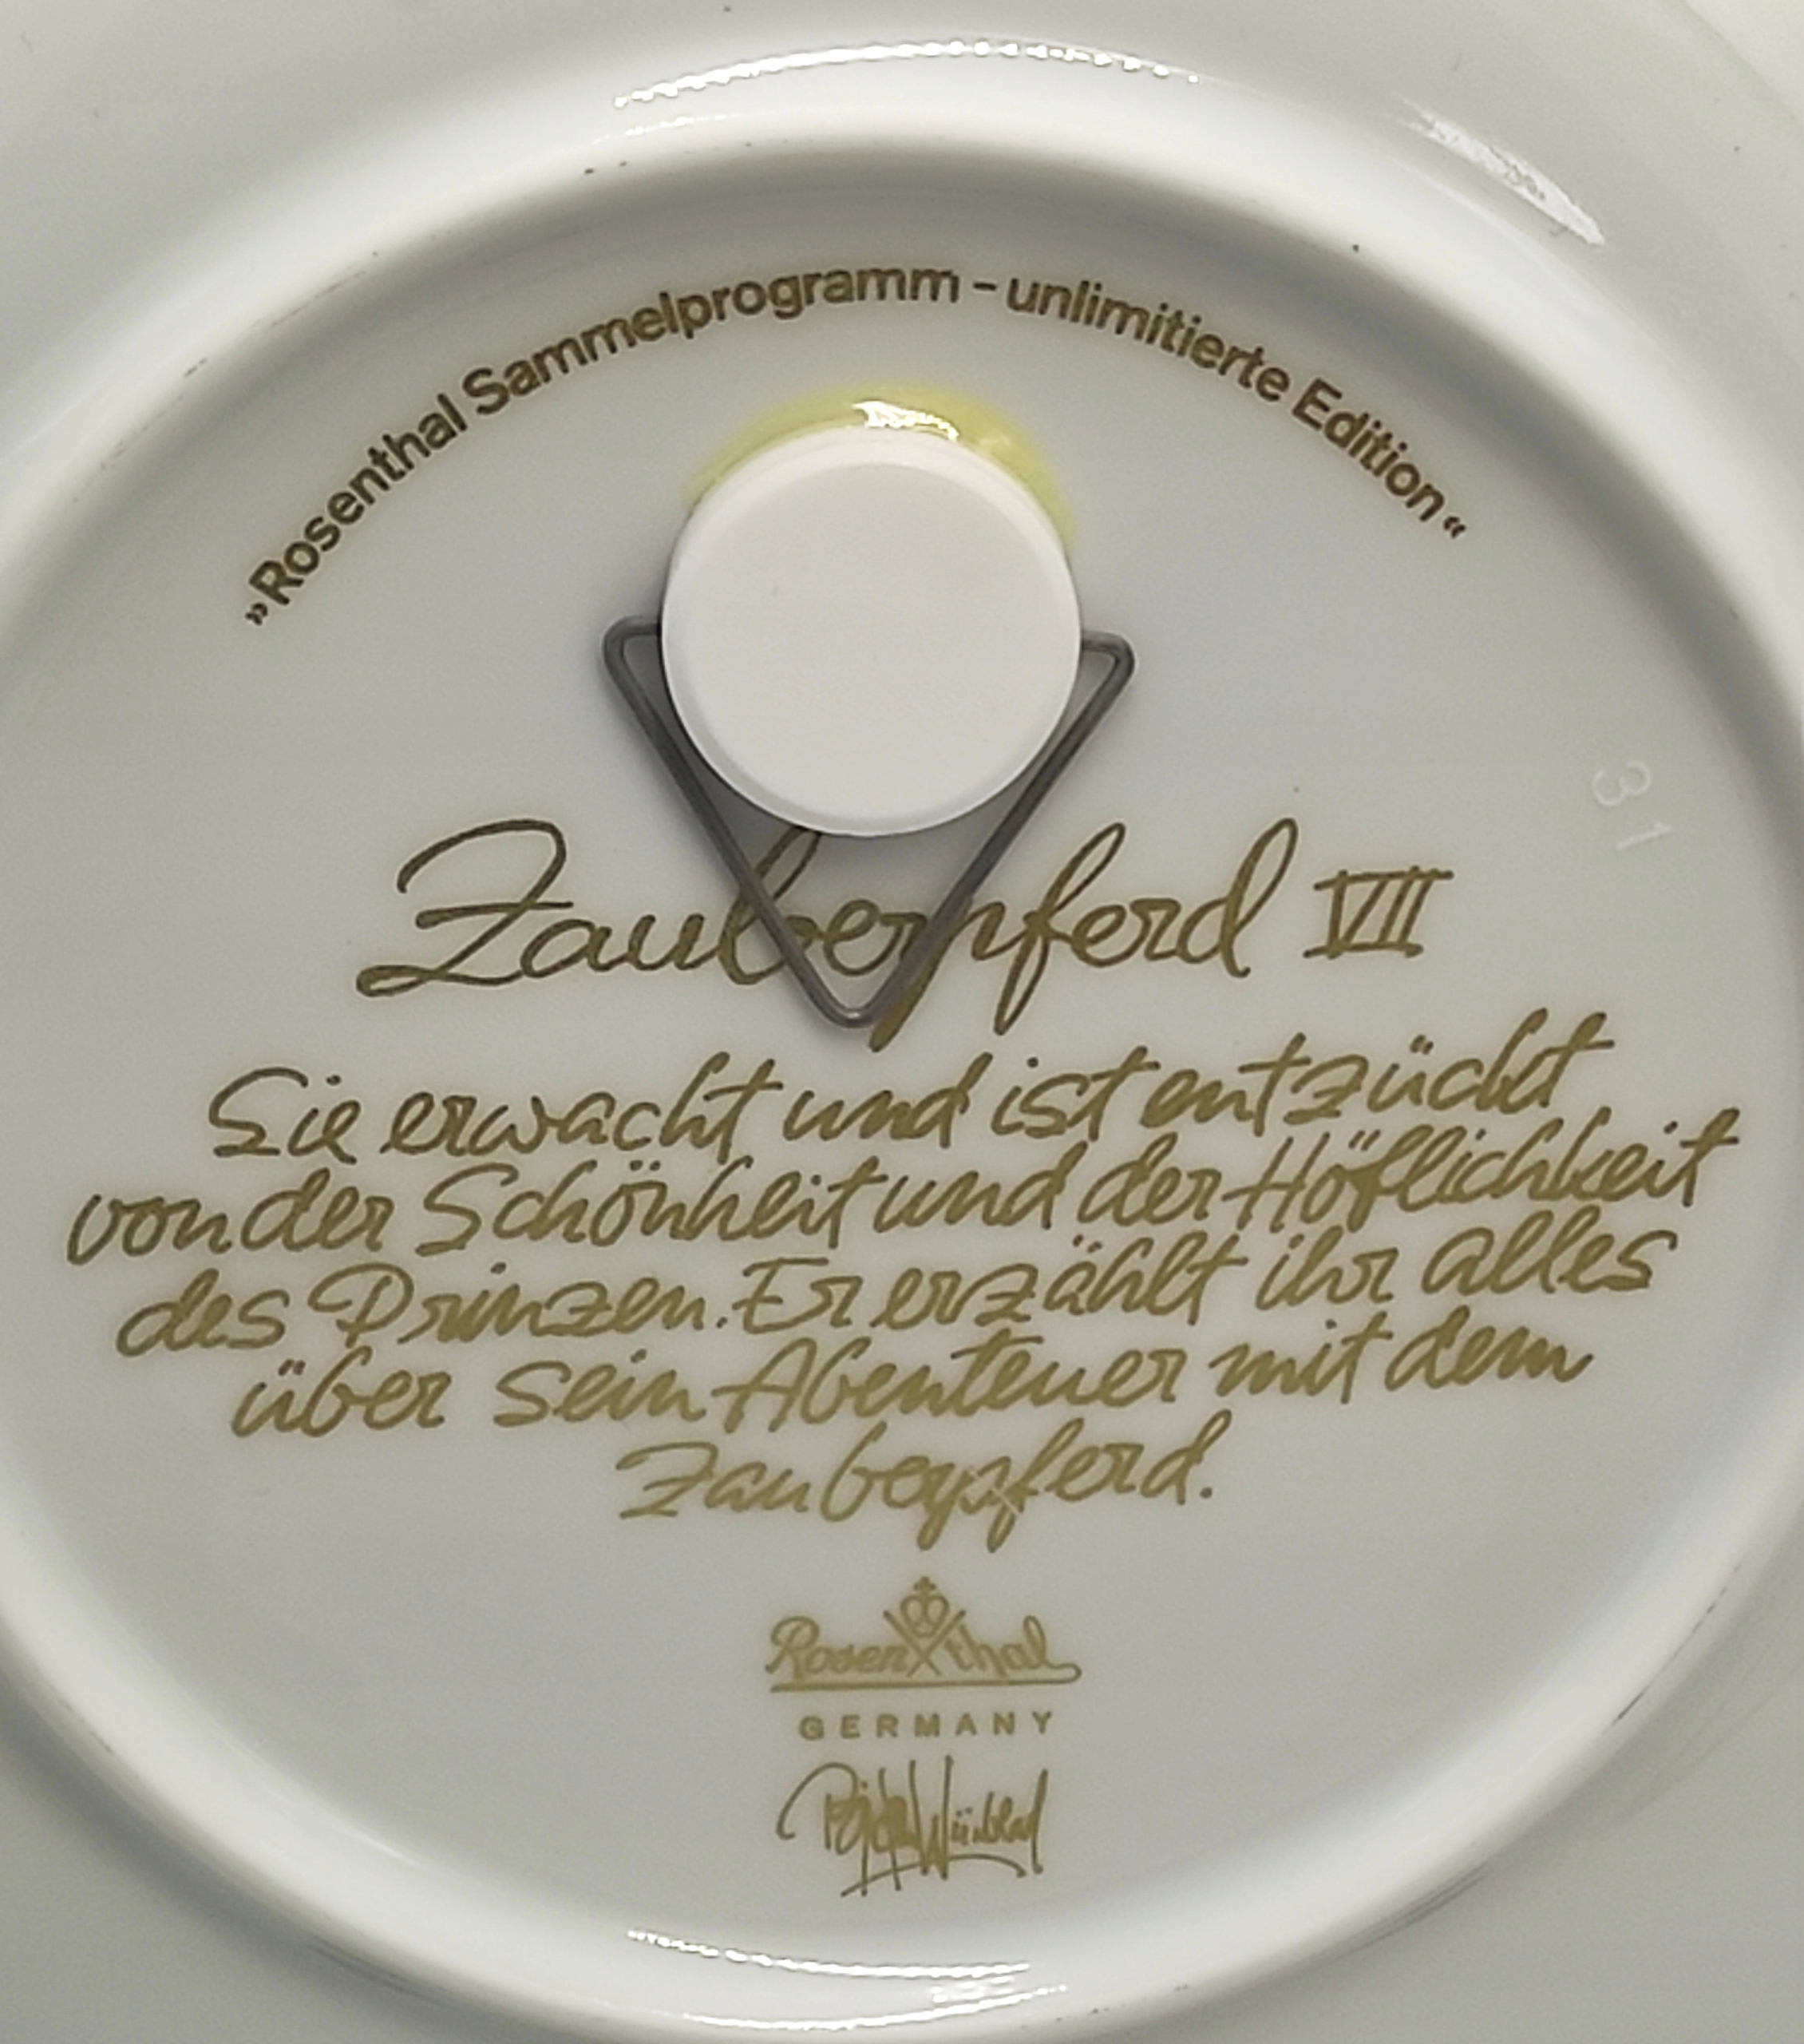 „Rosenthal Sammelprogramm – unlimitierte Edition“
31
Zauberpferd VII
Sie erwacht und ist entzückt
von der Schönheit und der Höflichkeit
des Prinzen. Er erzählt ihr alles
über sein Abenteuer mit dem
Zauberpferd.
Rosenthal
GERMANY
Bjørn Wiinblad